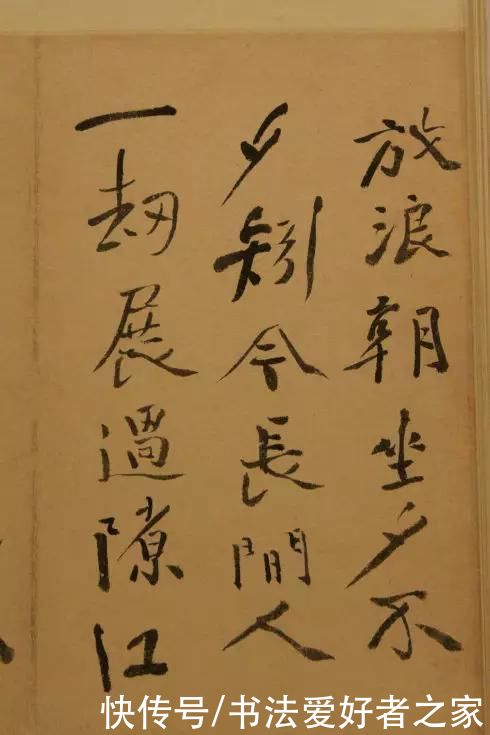 放浪朝坐夕不
夕矧今長閒人
一刧展過隙江
快传号/书法爱好者之家